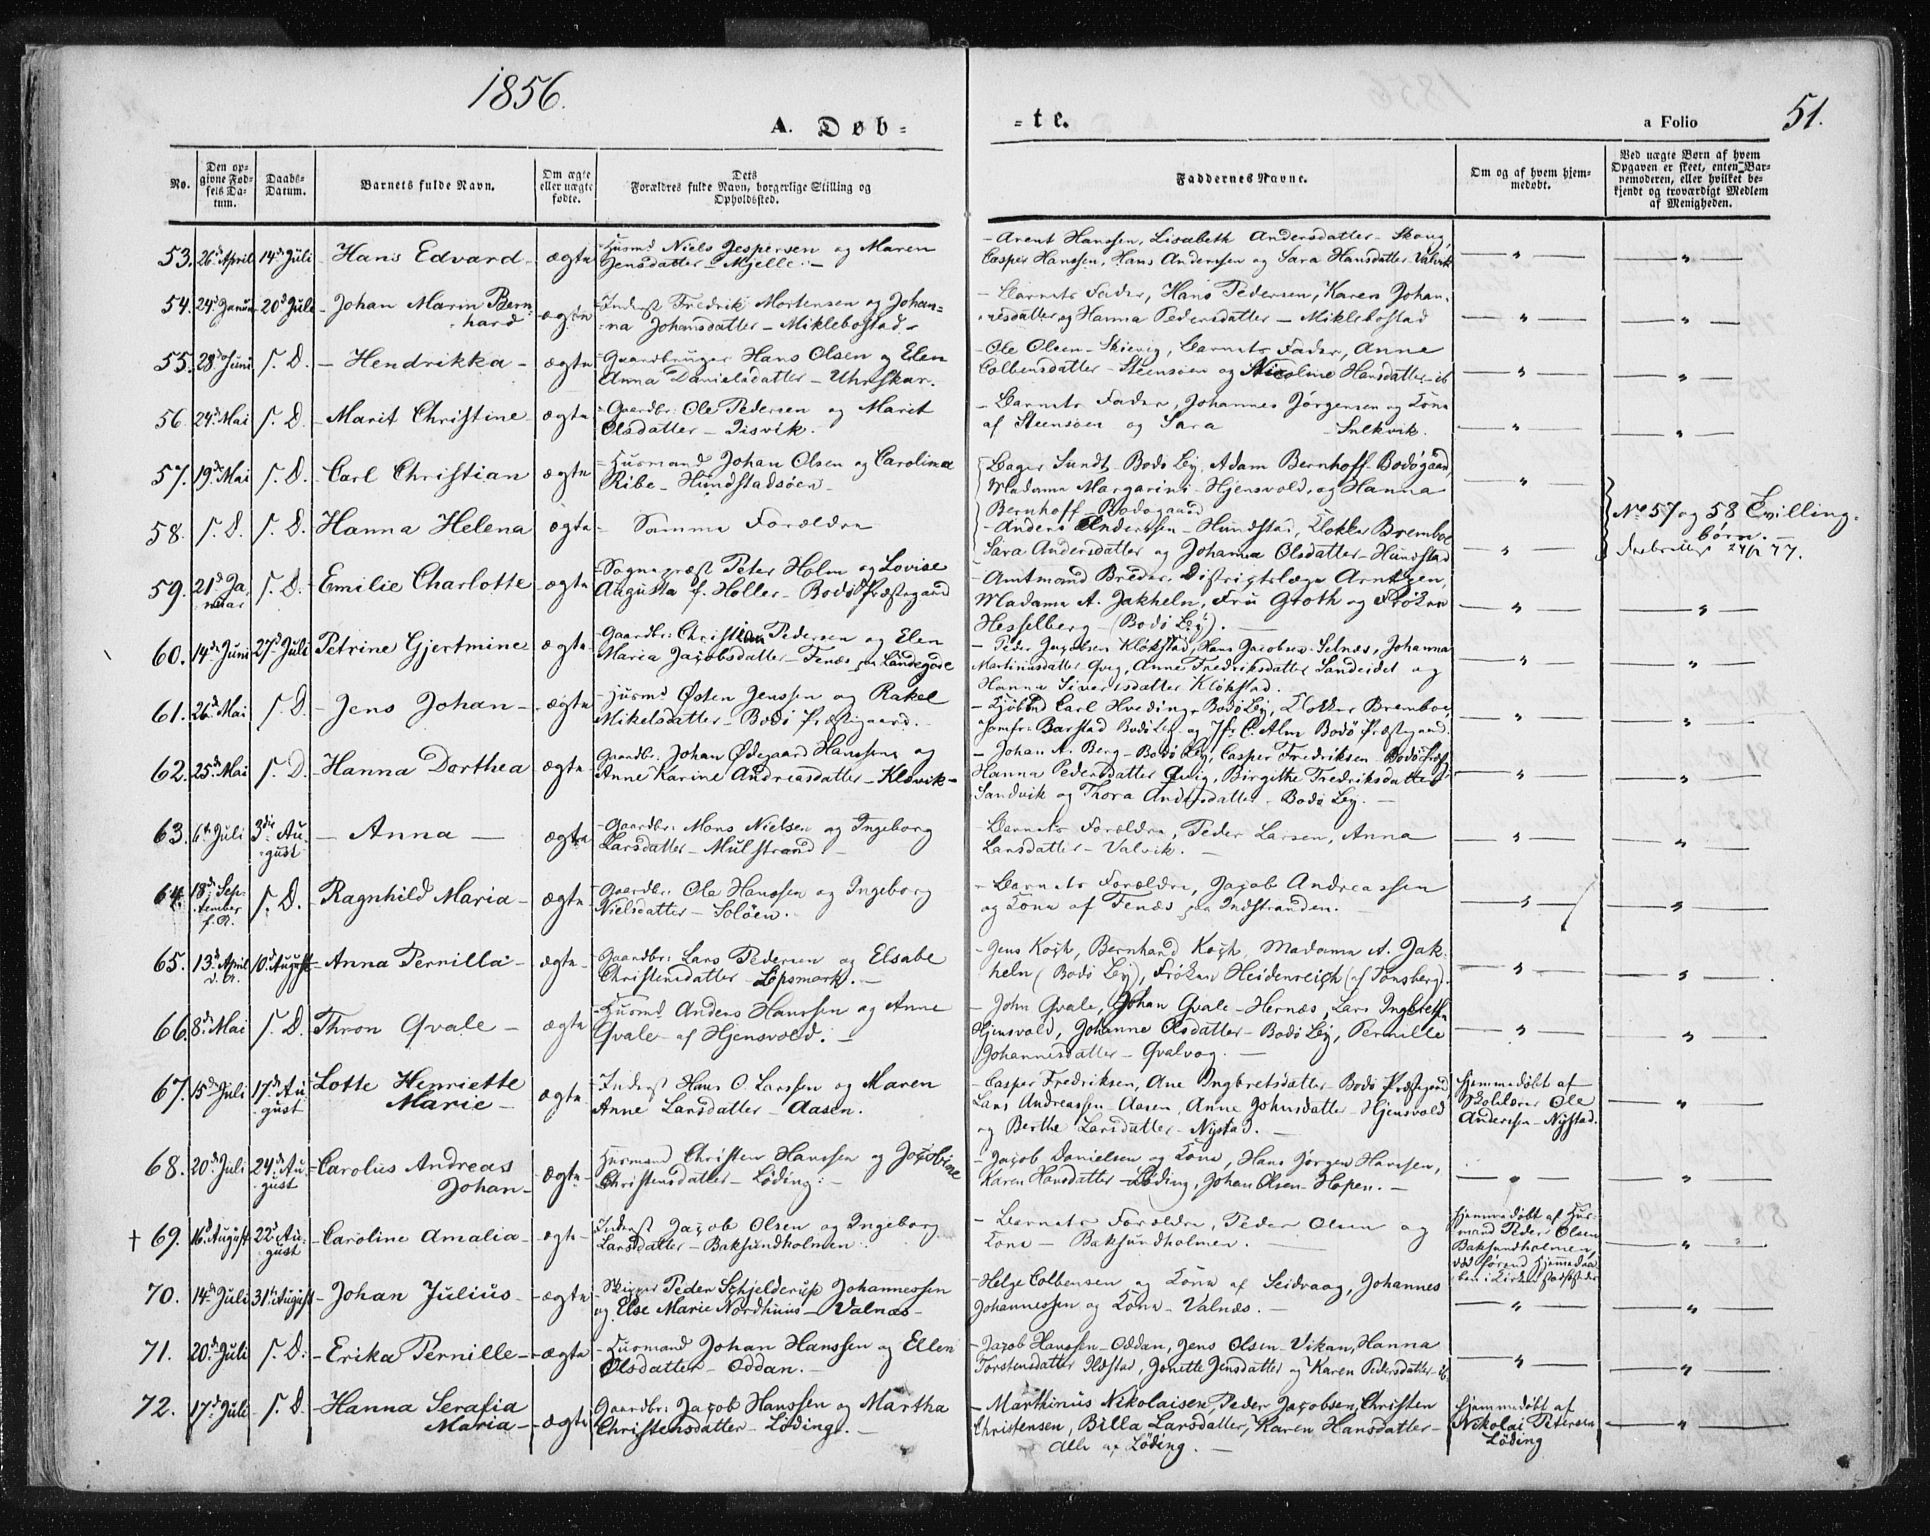 1856.
A. Døb-
-te.
a Folio
51.
No.
Den op-
givne Fød-
sels Da-
tum.
Daabs-
Datum.
Barnets fulde Navn.
Om ægte
eller uægte
fødte.
Dets
Forældres fulde Navn, borgerlige Stilling og
Opholdssted.
Faddernes Navne.
Om og af hvem hjem-
medøbt.
Ved uægte Børn af hvem
Opgaven er skeet, enten Bar-
nemoderen, eller hvilket be-
kjendt og troværdigt Medlem
af Menigheden.
53. 26d April 14d Juli - Hans Edvard - ægte
- Husmd Niels Jespersen og Maren
Jensdatter - Mjelle. -
- Arent Hanssen, Lisabeth Andersdatter - Skaug,
Casper Hanssen, Hans Anderssen og Sara Hansdatter - Valvik
54. 24d Januar 20d Juli - Johan Marin Bern-
hard - ægte
- Inderst Fredrik Mortensen og Johan-
na Johansdatter - Miklebostad -
- Barnets Fader, Hans Pedersen, Karen Johan-
nesdatter og Hanna Pedersdatter - Miklebostad
55. 28d Juni s. D. - Hendrikka - ægte
- Gaardbruger Hans Olsen og Elen
Anna Danielsdatter - Uhrskar.
- Ole Olsen - Skivig, Barnets Fader, Anne
Colbensdatter - Steensøen og Nicoline Hansdatter - ib
56. 24d Mai s. D. - Marit Christine - ægte
- Gaardbr: Ole Pedersen og Marit
Olsdatter - Tisvik.
- Barnets Fader, Johannes Jørgensen og Kone
af Steensøen og Sara - Sulkvik.
57. 19d Mai s. D. - Carl Christian - ægte
- Husmand Johan Olsen og Carolina
Ribe - Hundstadsøen -
Bager Sundt - Bodø By, Adam Bernhoff - Bodøgaard,
Madame Margarini - Hjensvold, og Hanna
Bernhoff - Bodøgaard
58. s. D. s. D. Hanna Helena ægte - Samme Forældre
- Anders Anderssen - Hundstad, Klokker Bremboe
Sara Andersdatter og Johanna Olsdatter - Hundstad
No 57 og 58 Tvilling-
børn. -
59. 21d Ja-
nuar s. D. - Emilie Charlotte - ægte
- Sognepræst Peter Holm og Lovise
Augusta f. Holler - Bodø Præstegaard
- Amtmand Breder, Distrigtslæge Arntzen,
Madame A. Jakheln, Fru Groth og Frøken
Hesselberg - (Bodø By). -
60. 14d Juni 27d Juli - Petrine Gjertmine - ægte
- Gaardbr: Christian Pedersen og Elen
Maria Jacobsdatter - Fenæs paa Landegode
- Peder Jacobsen Kløkstad, Hans Jacobsen - Selnæs, Johanna
Martinusdatter Gvig, Anne Fredriksdatter Sandeidet og
Hanna Siversdatter Kløkstad.
61. 26d Mai s. D. - Jens Johan - ægte
- Husmd Østen Jenssen og Rakel
Mikelsdatter - Bodø Præstegaard. -
- Kjøbmd Carl Hveding - Bodø By, Klokker Bremboe,
Jomfr: Barstad Bodø By og Jfr C. Alm Bodø Præstegaard
62. 25d Mai s. D. - Hanna Dorthea ægte
Gaardbr: Johan Ødegaard Hanssen og
Anne Karine Andreasdatter - Kløvik -
- Johan A. Berg - Bodø By, Casper Fredriksen - Bodø Præstg
Hanna Pedersdatter Gvig, Birgithe Fredriksdatter
Sandvik og Thora Andersdatter - Bodø By. -
63. 6te Juli 3die Au-
gust - Anna - ægte
- Gaardbr: Mons Nielsen og Ingeborg
Larsdatter - Mulstrand -
- Barnets Forældre, Peder Larsen, Anna
Larsdatter - Valvik. -
64. 18d Sep-
tember
f. A. s. D. Ragnhild Maria - ægte
- Gaardbr: Ole Hanssen og Ingeborg
Nielsdatter - Soløen. -
- Barnets Forældre, Jacob Andreassen
og Kone af Fenæs paa Indstranden. -
65. 13d April
d. A. 10d August - Anna Pernilla - ægte -
Gaardbr: Lars Pedersen og Elsabe
Christensdatter - Løpsmark. -
- Jens Kogh, Bernhard Kogh, Madame A. Jak-
heln (Bodø By), Frøken Heidenreich (af Tønsberg).
66. 8d Mai s. D. Thron Qvale - ægte -
Husmd Anders Hanssen og Anne
Qvale - af Hjensvold. -
- John Qvale, Johan Qvale - Hernæs, Lars Ingbretsen
Hjensvold, Johanne Olsdatter - Bodø By, Pernille
Johannesdatter - Qvalvog. -
67. 15d Juli 17d Au-
gust Lotte Henriette
Marie - ægte -
Inderst Hans O. Larssen og Maren
Anne Larsdatter - Aasen.
- Casper Fredriksen, Ane Ingbretsdatter - Bodø Præstegaard,
Lars Andreassen - Aasen, Anne Johnsdatter - Hjensvold
og Berthe Larsdatter - Nystad. -
Hjemmedøbt af
Skolelærer Ole
Anderssen - Nystad.
68. 20d Juli 24d Au-
gust - Carolus Andreas
Johan - ægte -
Husmand Christen Hanssen og Jacobine
Christensdatter - Løding. -
- Jacob Danielsen og Kone, Hans Jørgen Hanssen,
Karen Hansdatter - Løding, Johan Olsen - Hopen. -
† 69. 16d August 22d Au-
gust - Caroline Amalia - ægte -
Inderst Jacob Olsen og Ingeborg
Larsdatter - Baksundholmen.
- Barnets Forældre, Peder Olsen og
Kone - Baksundholmen. -
Hjemmedøbt af Hus-
mand Peder Olsen
Baksundholmen,
70. 14d Juli 31te August - Johan Julius - ægte
- Skipper Peder Schjelderup Johannessen
og Else Marie Nordhuus - Valnæs -
- Helge Colbensen og Kone af Seivaag, Johannes
Johannessen og Kone - Valnæs. -
71. 20d Juli s. D. - Erika Pernille - ægte
- Husmand Johan Hanssen og Ellen
Olsdatter - Oddan. -
- Jacob Hanssen - Oddan, Jens Olsen - Vikan, Hanna
Torstensdatter Ildstad, Jonette Jensdatter og Karen Pedersdatter - ib
72. 17d Juli s. D - Hanna Serafia
Maria - ægte
Gaardbr: Jacob Hanssen og Martha
Christensdatter - Løding. -
- Marthinius Nikolaisen, Peder Jacobsen, Christen
Christensen, Billa Larsdatter, Karen Hansdatter -
alle af Løding. -
Hjemmedøbt af
Nikolai Petersen
Løding